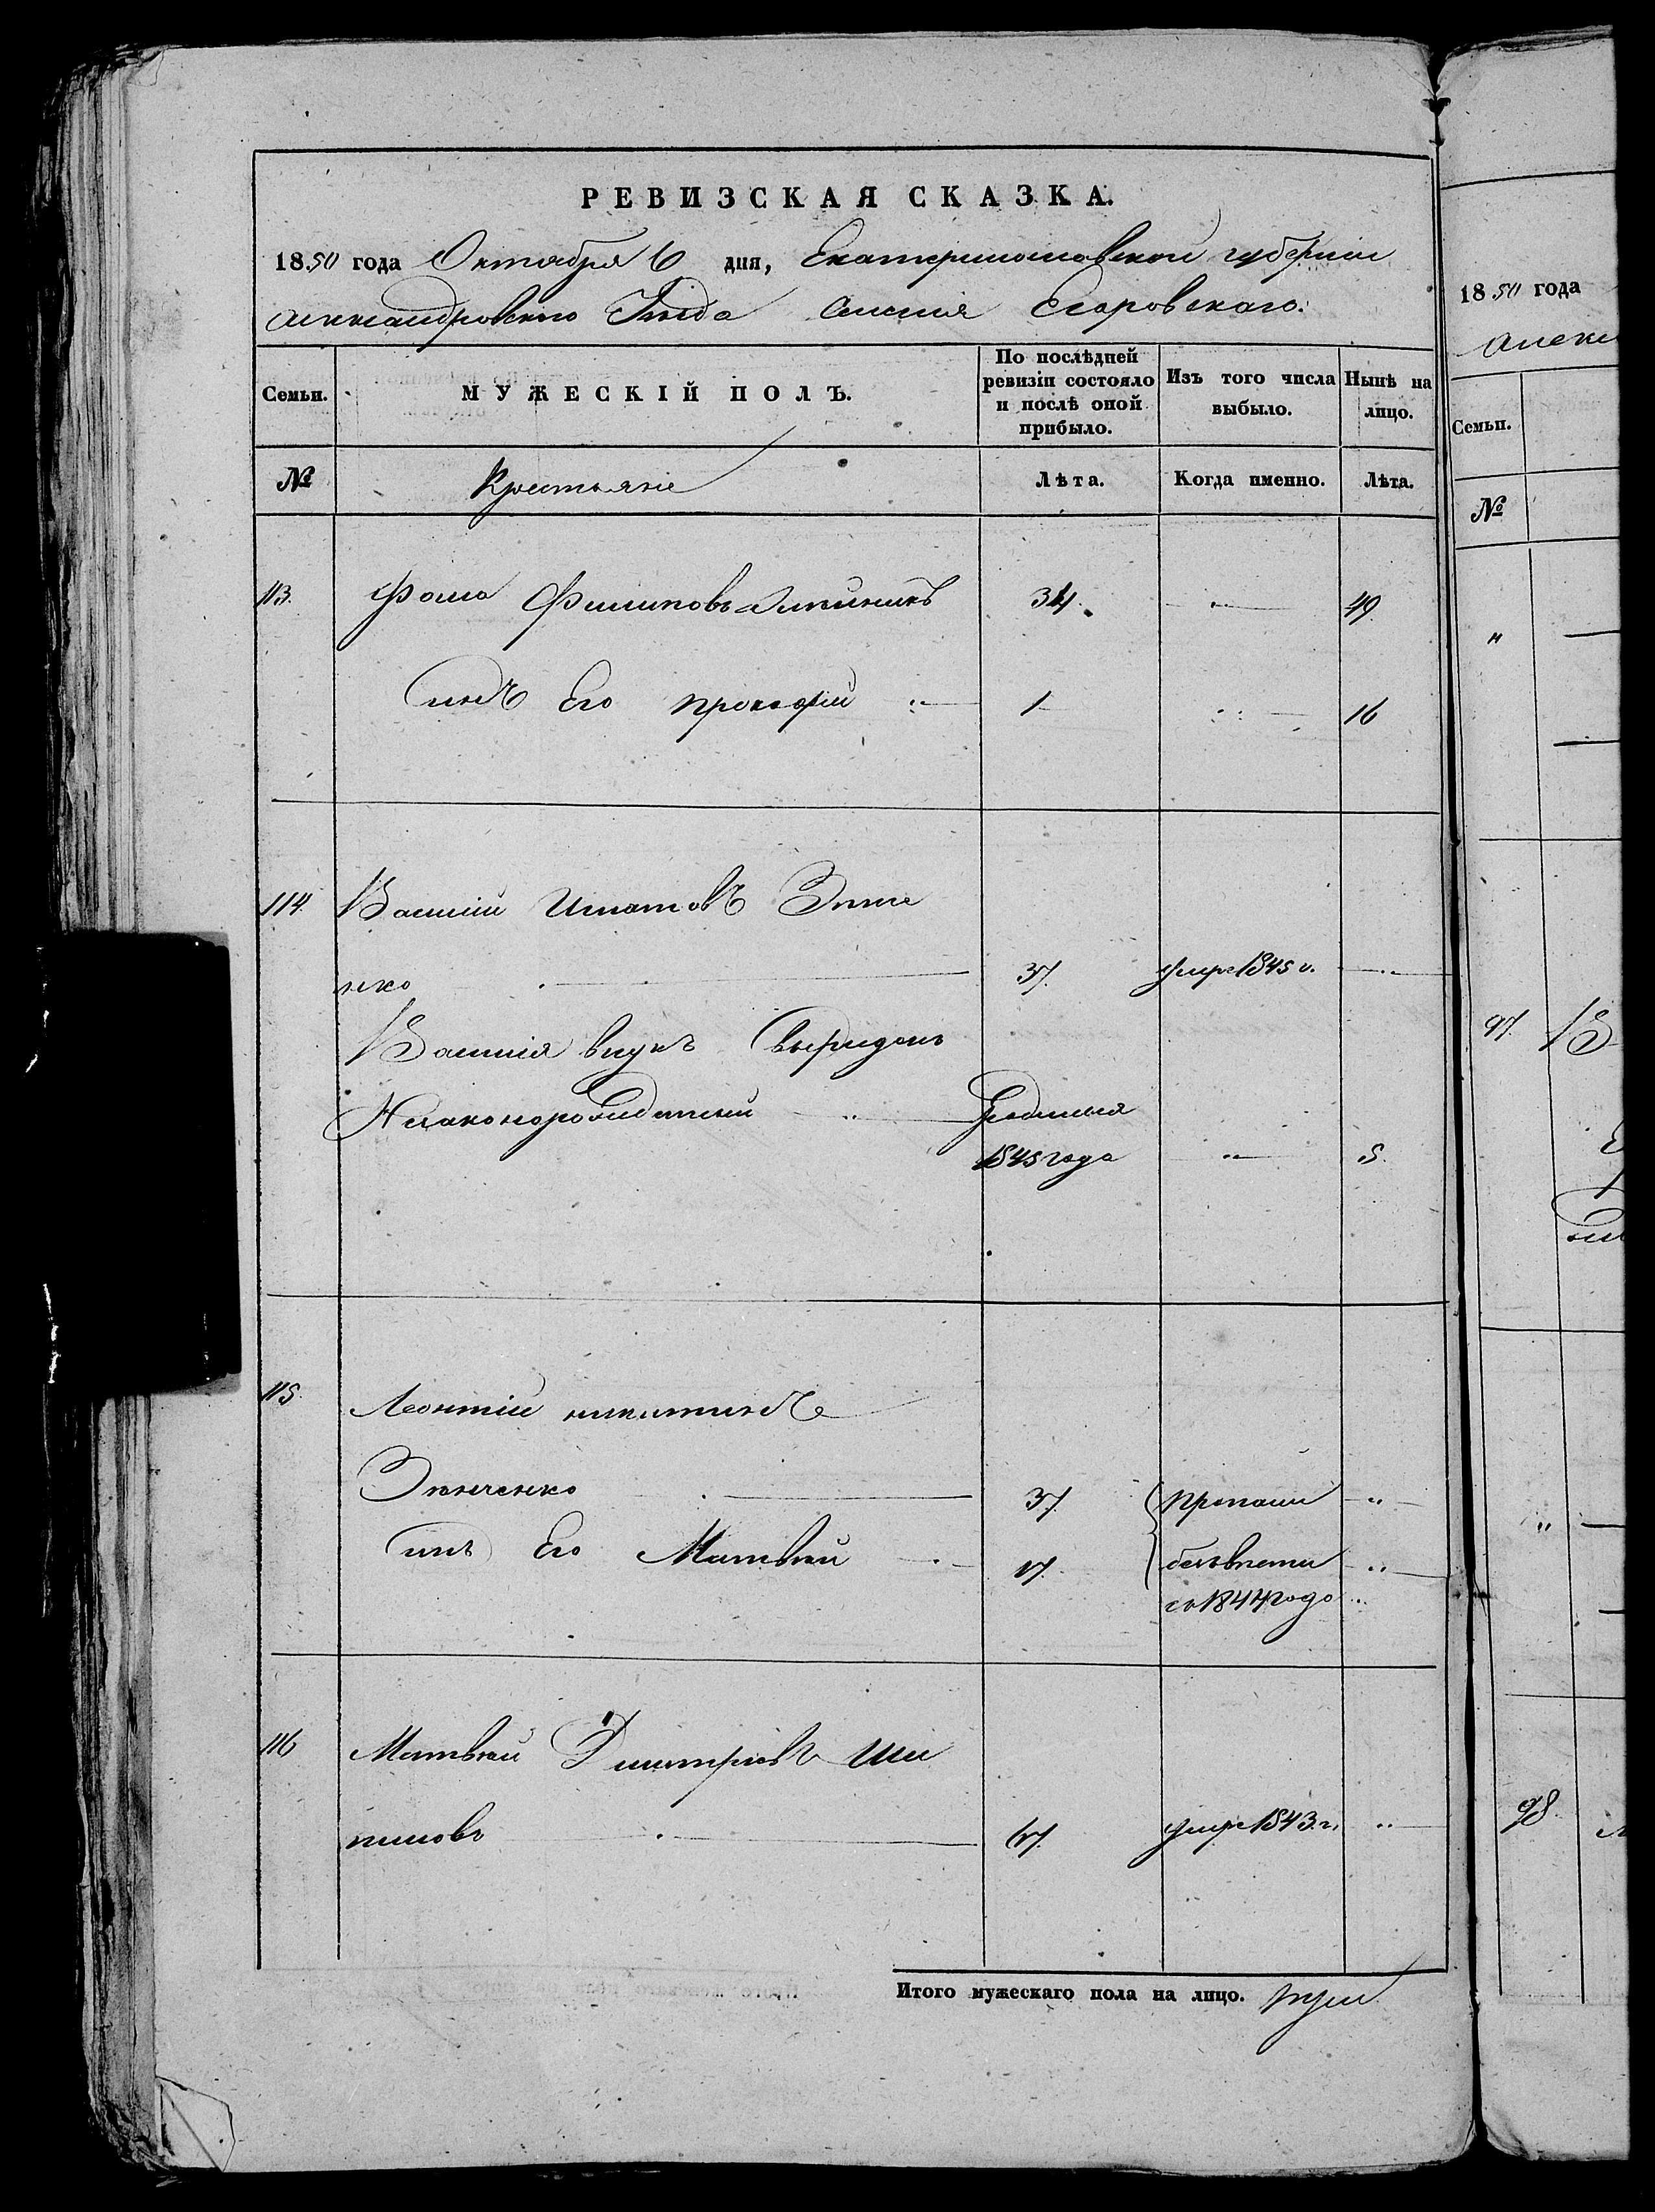 РЕВИЗСКАЯ СКАЗКА.
1850 года Октября 6 дня, Екатеринославской губернии
Александровского Уѣзда Селенія Егоровскаго.
Семьи. МУЖЕСКІЙ ПОЛЪ. По послѣдней ревизіи состояло и послѣ оной прибыло. Изъ того числа выбыло. Нынѣ на лицо.
№ Крестьяне Лѣта. Когда именно. Лѣта.
113. Фома Филиповъ 34. 49
Сынъ Его Прокофій 1 16
114. Василій Игнатовъ Зѣнче
нко 37. умре 1845 г.
Василія внукъ Свиридонъ
Незаконорожденный Рожденія
1845 года 5.
115. Леонтій Никитинъ
Зѣнченко 37. пропали
Сынъ Его Матвѣй 17. безвѣсти
съ 1844 года
116 Матвѣй Дмитріевъ Ши
пиловъ 67. умре 1843 г.
Итого мужескаго пола на лицо. три
1850 года
Алекс
Семьи.
№
97. В
98.